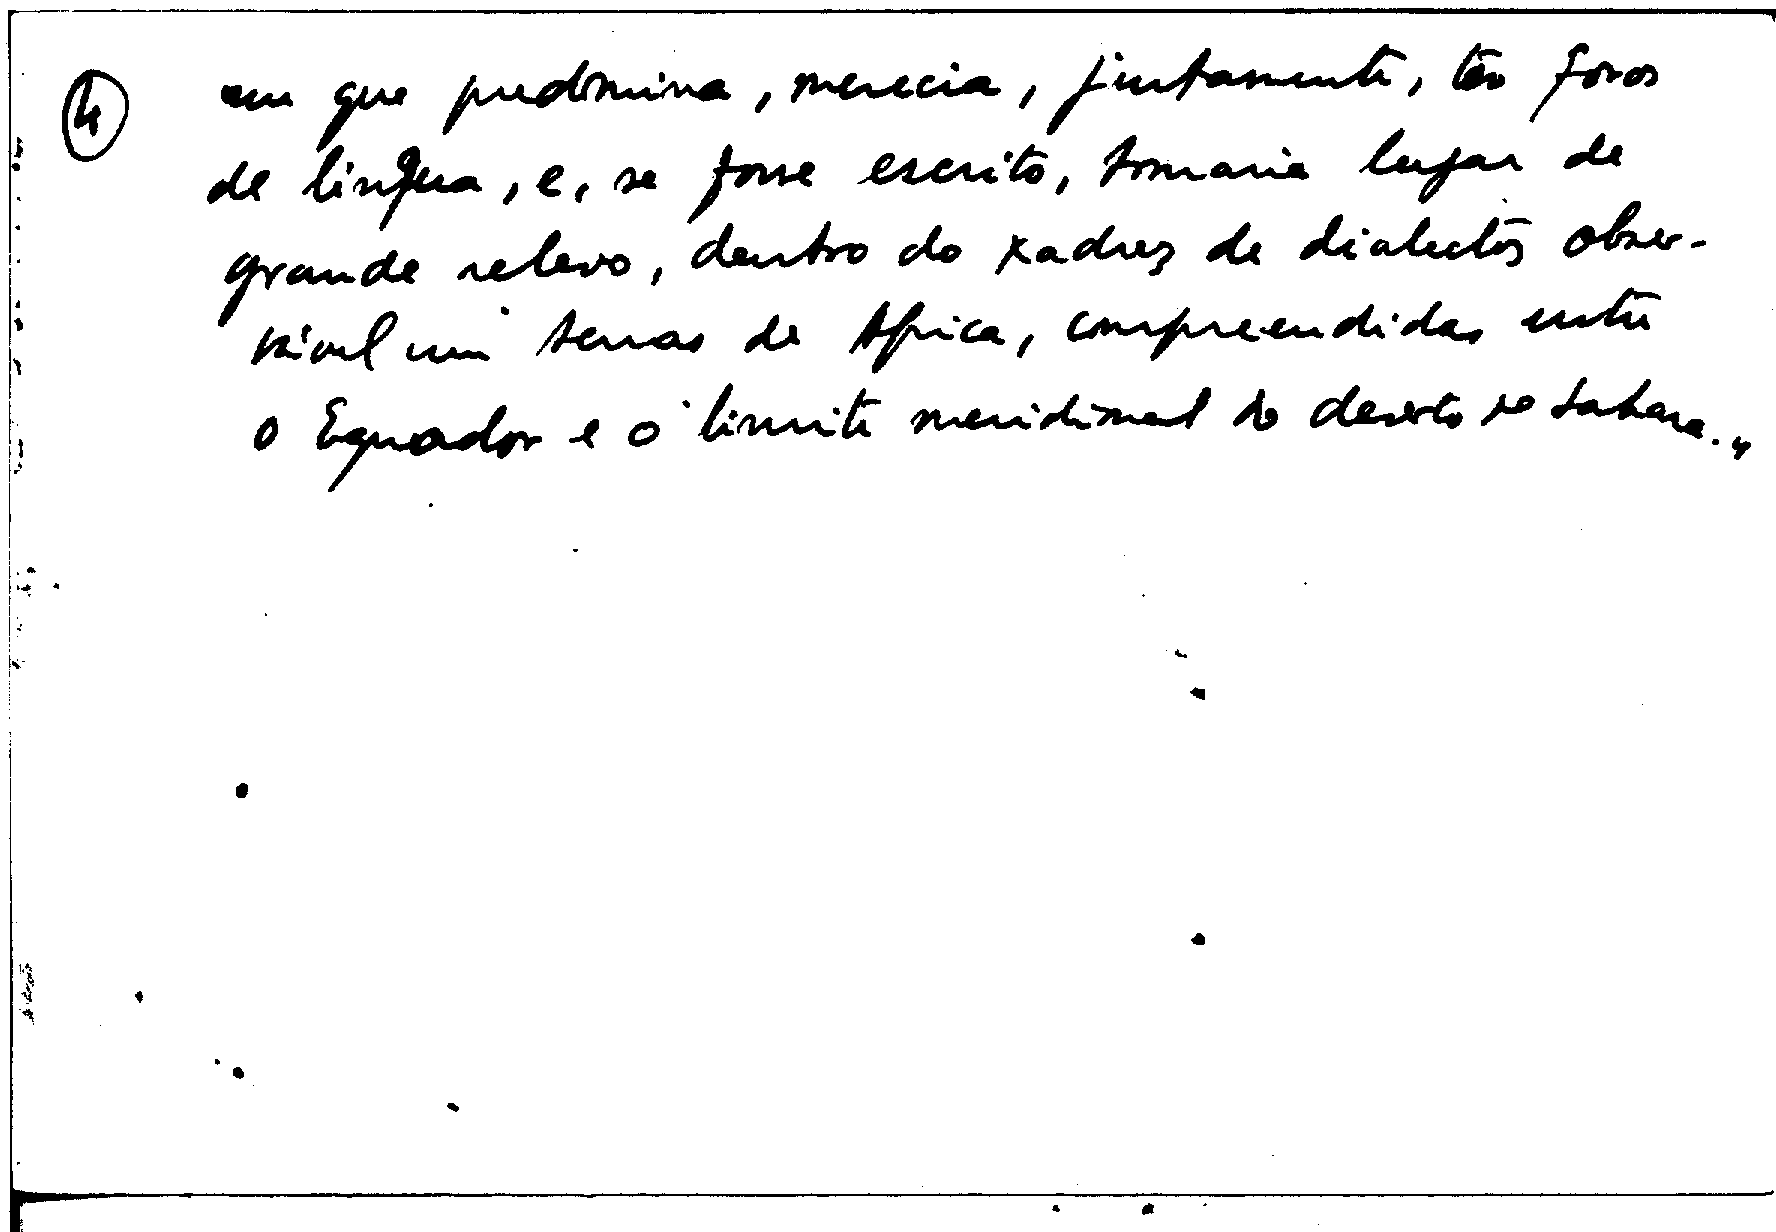 ④ em que predomina, merecia, juntamente, ter foros
de lingua, e, se fosse escrito, tomaria lugar de
grande relevo, dentro do xadrez de dialectos obser-
vável em terras de Africa, compreendidas entre
o Equador e o limite meridional do deserto do Sahara."